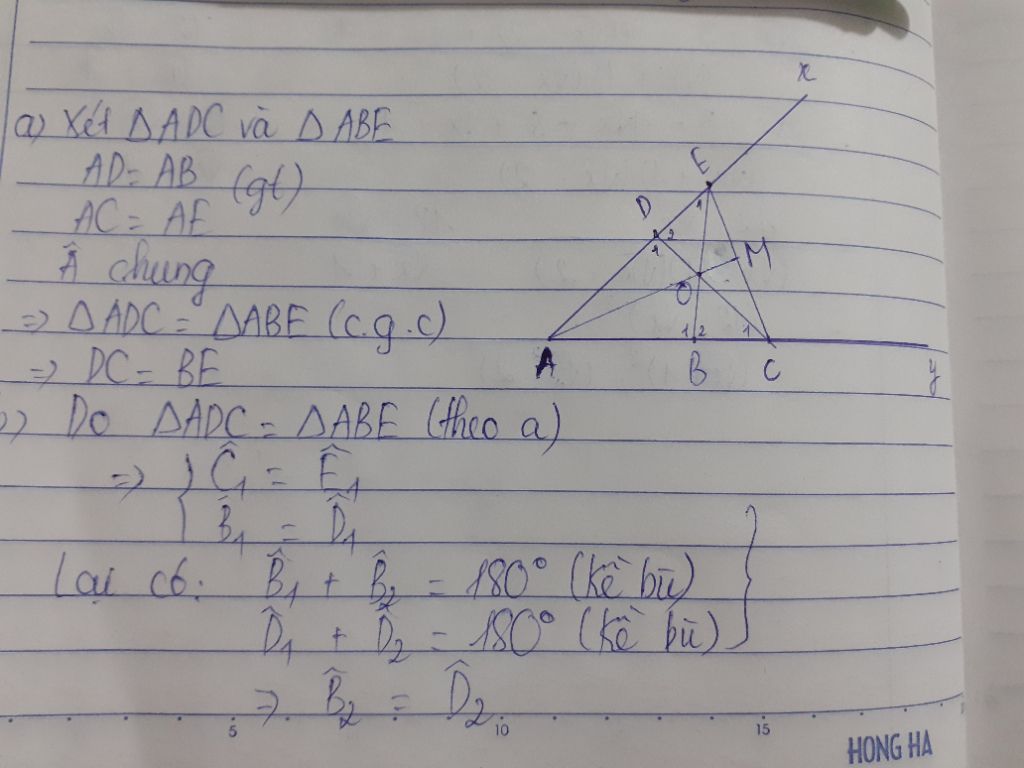 a) Xét ΔADC và ΔABE
AD = AB (gt)
AC = AE
Â chung
=> ΔADC = ΔABE (c.g.c)
=> DC = BE
b) Do ΔADC = ΔABE (theo a)
=> { Ĉ₁ = Ê₁
B̂₁ = D̂₁
Lại có: B̂₁ + B̂₂ = 180° (kề bù)
D̂₁ + D̂₂ = 180° (kề bù) }
=> B̂₂ = D̂₂
x
E
1
D
1 2
M
O
1 2 1
A B C y
5 10 15
HONG HA